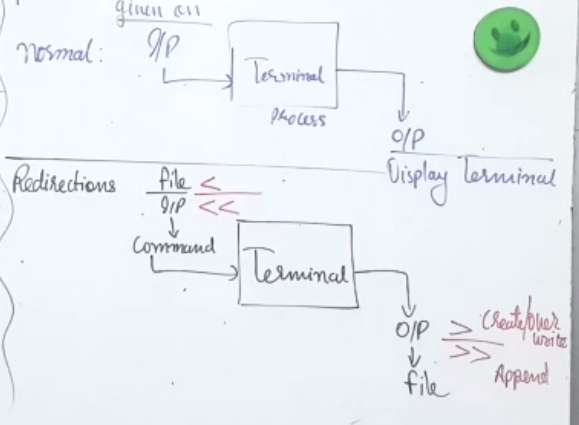 given on
Normal: I/P
Terminal
Process
O/P
Display Terminal
Redirections file <
I/P <<
Command
Terminal
O/P > Create/over
write
>>
file Append